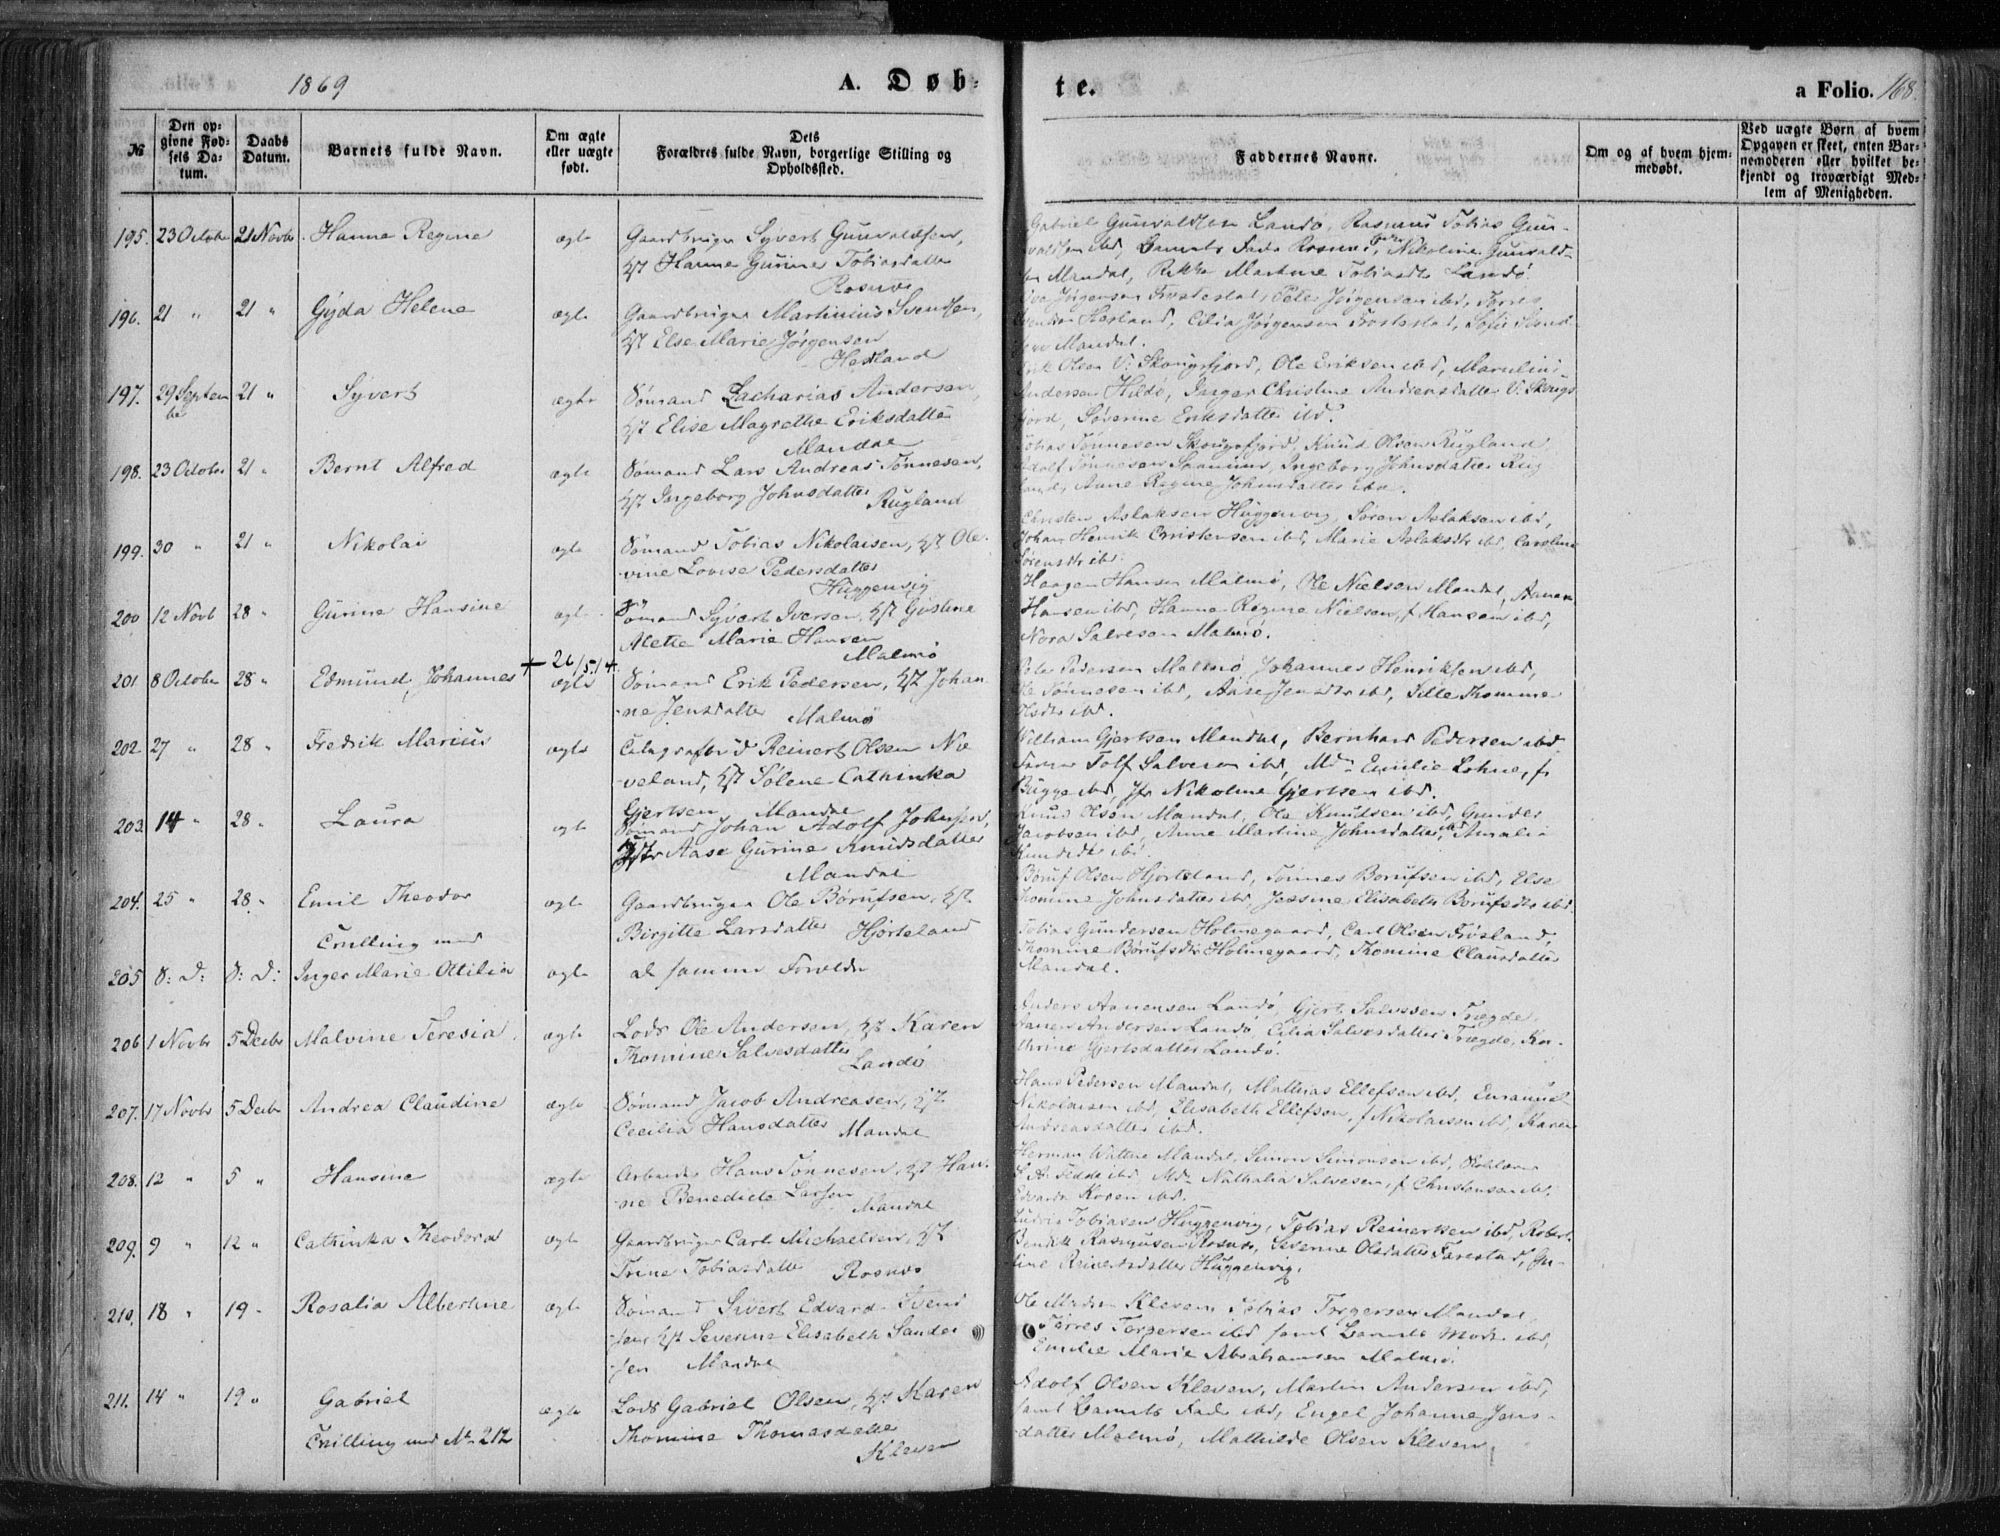 1869
A. Døb-
te.
a Folio. 168.
№
Den op-
givne Fød-
sels Da-
tum.
Daabs
Datum.
Barnets fulde Navn.
Om ægte
eller uægte
født.
Dets
Forældres fulde Navn, borgerlige Stilling og
Opholdssted.
Faddernes Navne.
Om og af hvem hjem-
medøbt.
Ved uægte Børn af hvem
Opgaven er skeet, enten Bar-
nemoderen eller hvilket be-
kjendt og troværdigt Med-
lem af Menigheden.
195. 23 Octobr 21 Novbr Hanne Regine ægte Gaardbruger Syvert Gunvaldsen,
Hst Hanne Gurine Tobiasdatter
Rosnæs
Gabriel Gunvaldsen Landø, Rasmus Tobias Gun-
valdsen ibd, Barnets Fader Rosnæs, Nikoline Gunvald-
sen Mandal, Rikke Martine Tobiasdtr Landø
196. 21 " 21 " Gyda Helene ægte Gaardbruger Martinius Svendsen,
Hst Else Marie Jørgensen
Hesland
Jørgensen Frostestad, Peter Jørgensen ibd, Torres
Svendsen Hesland, Cilia Jørgensen Frostestad, Sofie
Mandal.
197. 29 Septem 21 " Syvert ægte Sømand Zacharias Andersen,
ber
Hst Elise Magrethe Eriksdatter
Mandal
Erik Olsen V: Skougsfjord, Ole Eriksen ibd, Marulius
Andersen Hildø, Inger Christine Andersdatter V. Skougs
fjord, Søverine Eriksdatter ibd.
198. 23 Octobr 21 " Bernt Alfred ægte Sømand Lars Andreas Tønnesen,
Hst Ingeborg Johnsdatter
Rugland
Tobias Tønnesen Skougsfjord, Knud Olsen Rugland
Adolf Tønnesen Ingeborg Johnsdatter Rug
land, Anne Regine Johnsdatter ibd.
199. 30 " 21 " Nikolai ægte Sømand Tobias Nikolaisen, Hst Ole-
vine Lovise Pedersdatter
Huggenvig
Christen Aslaksen Huggenvig, Søren Aslaksen ibd,
Johan Henrik Christensen ibd, Marie Aslaksdtr ibd, Caroline
Sørensdtr ibd
200 12 Novb 28 " Gurine Hansine ægte Sømand Syvert Iversen, Hst Gustine
Alette Marie Hansen
Malmø
Haagen Hansen Malmø, Ole Nielsen Mandal, Aanen
Hansen ibd, Hanne Regine Nielsen, f Hansen ibd,
Nora Salvesen Malmø.
201. 8 October 28 " Edmund Johannes + 26/5.14. ægte Sømand Erik Pedersen, Hst Johan
-ne Jensdatter Malmø
Peder Pedersen Malmø Johannes Henriksen ibd,
Ole Tønnesen ibd, Aase Jensdtr ibd, Sille Thomine
Olsdtr ibd.
202. 27 " 28 " Fredrik Marius ægte Reinert Olsen Nø
veland, Hst Solene Cathinka
Gjertsen Mandal
William Gjertsen Mandal, Bernhard Pedersen ibd
Tolf Salvesen ibd, Mdm Emilie Lohne, f.
Bugge ibd, Jfr Nikoline Gjertsen ibd.
203. 14 " 28 " Laura ægte Sømand Johan Adolf Johnsen,
Hst Aase Gurine Knudsdatter
Mandal
Knud Olsen Mandal, Ole Knudsen ibd, Gunder
Jacobsen ibd, Anne Martine Johnsdatter ibd Amalie
Knudsdtr ibd.
204. 25 " 28 " Emil Theodor ægte Gaardbruger Ole Børufsen, Hst
Tvilling med Birgitte Larsdatter Hjorteland
Børuf Olsen Hjorteland, Tønnes Børufsen ibd, Else
Thomine Johnsdatter ibd Jessine Elisabeth Børufsdtr ibd.
205 d: d: d: d: Inger Marie Ottilia ægte de samme Forældre
Tobias Gundersen Holmegaard, Carl Olsen Frøsland,
Thomine Børufsdtr Holmegaard, Thomine Clausdatter
Mandal.
206 1 Novbr 5 Decbr Malvine Teresia ægte Lods Ole Andersen, Hst Karen
Thomine Salvesdatter
Landø
Anders Aanensen Landø, Gjert Salvesen Trægde,
Aanen Andersen Landø, Cilia Salvesdatter Trægde, Ka-
thrine Gjertsdatter Landø.
207. 17 Novbr 5 Decbr Andrea Claudine ægte Sømand Jacob Andreasen, Hst
Cecilia Hansdatter Mandal
Hans Pedersen Mandal, Mathias Ellefsen ibd, Emanuel
Nikolaisen ibd, Elisabeth Ellefsen, f Nikolaisen ibd, Karen
Andreasdatter ibd.
208. 12 " 5 " Hansine ægte Arbeider Hans Tønnesen, Hst Han-
-ne Benedicte Larsen
Mandal
Herman Wattne Mandal, Simon Simonsen ibd,
Fedde ibd, Mdm Nathalia Salvesen, f Christensen ibd,
Edvarda Koren ibd.
209. 9 " 12 " Cathinka Theodora ægte Gaardbruger Carl Michaelsen, Hst
Trine Tobiasdatter Rosnæs
Tobiasen Huggenvig, Tobias Reinertsen ibd, Robert
Bendik Rasmusen Rosnæs, Severine Olsdatter Farestad, Gu-
line Reinertsdatter Huggenvig.
210. 18 " 19 " Rosalia Albertine ægte Sømand Sivert Edvard Svend
sen, Hst Severine Elisabeth Sander
sen Mandal
Ole Madsen Kleven Tobias Torgersen Mandal,
Torres Torgersen ibd samt Barnets Moder ibd,
Emilie Marie Abrahamsen Malmø.
211. 14 " 19 " Gabriel ægte Lods Gabriel Olsen, Hst Karen
Tvilling med № 212 Thomine Thomasdatter
Kleven
Adolf Olsen Kleven, Martin Andersen ibd,
samt Barnets Fader ibd, Engel Johanne Jens-
datter Malmø, Mathilde Olsen Kleven.